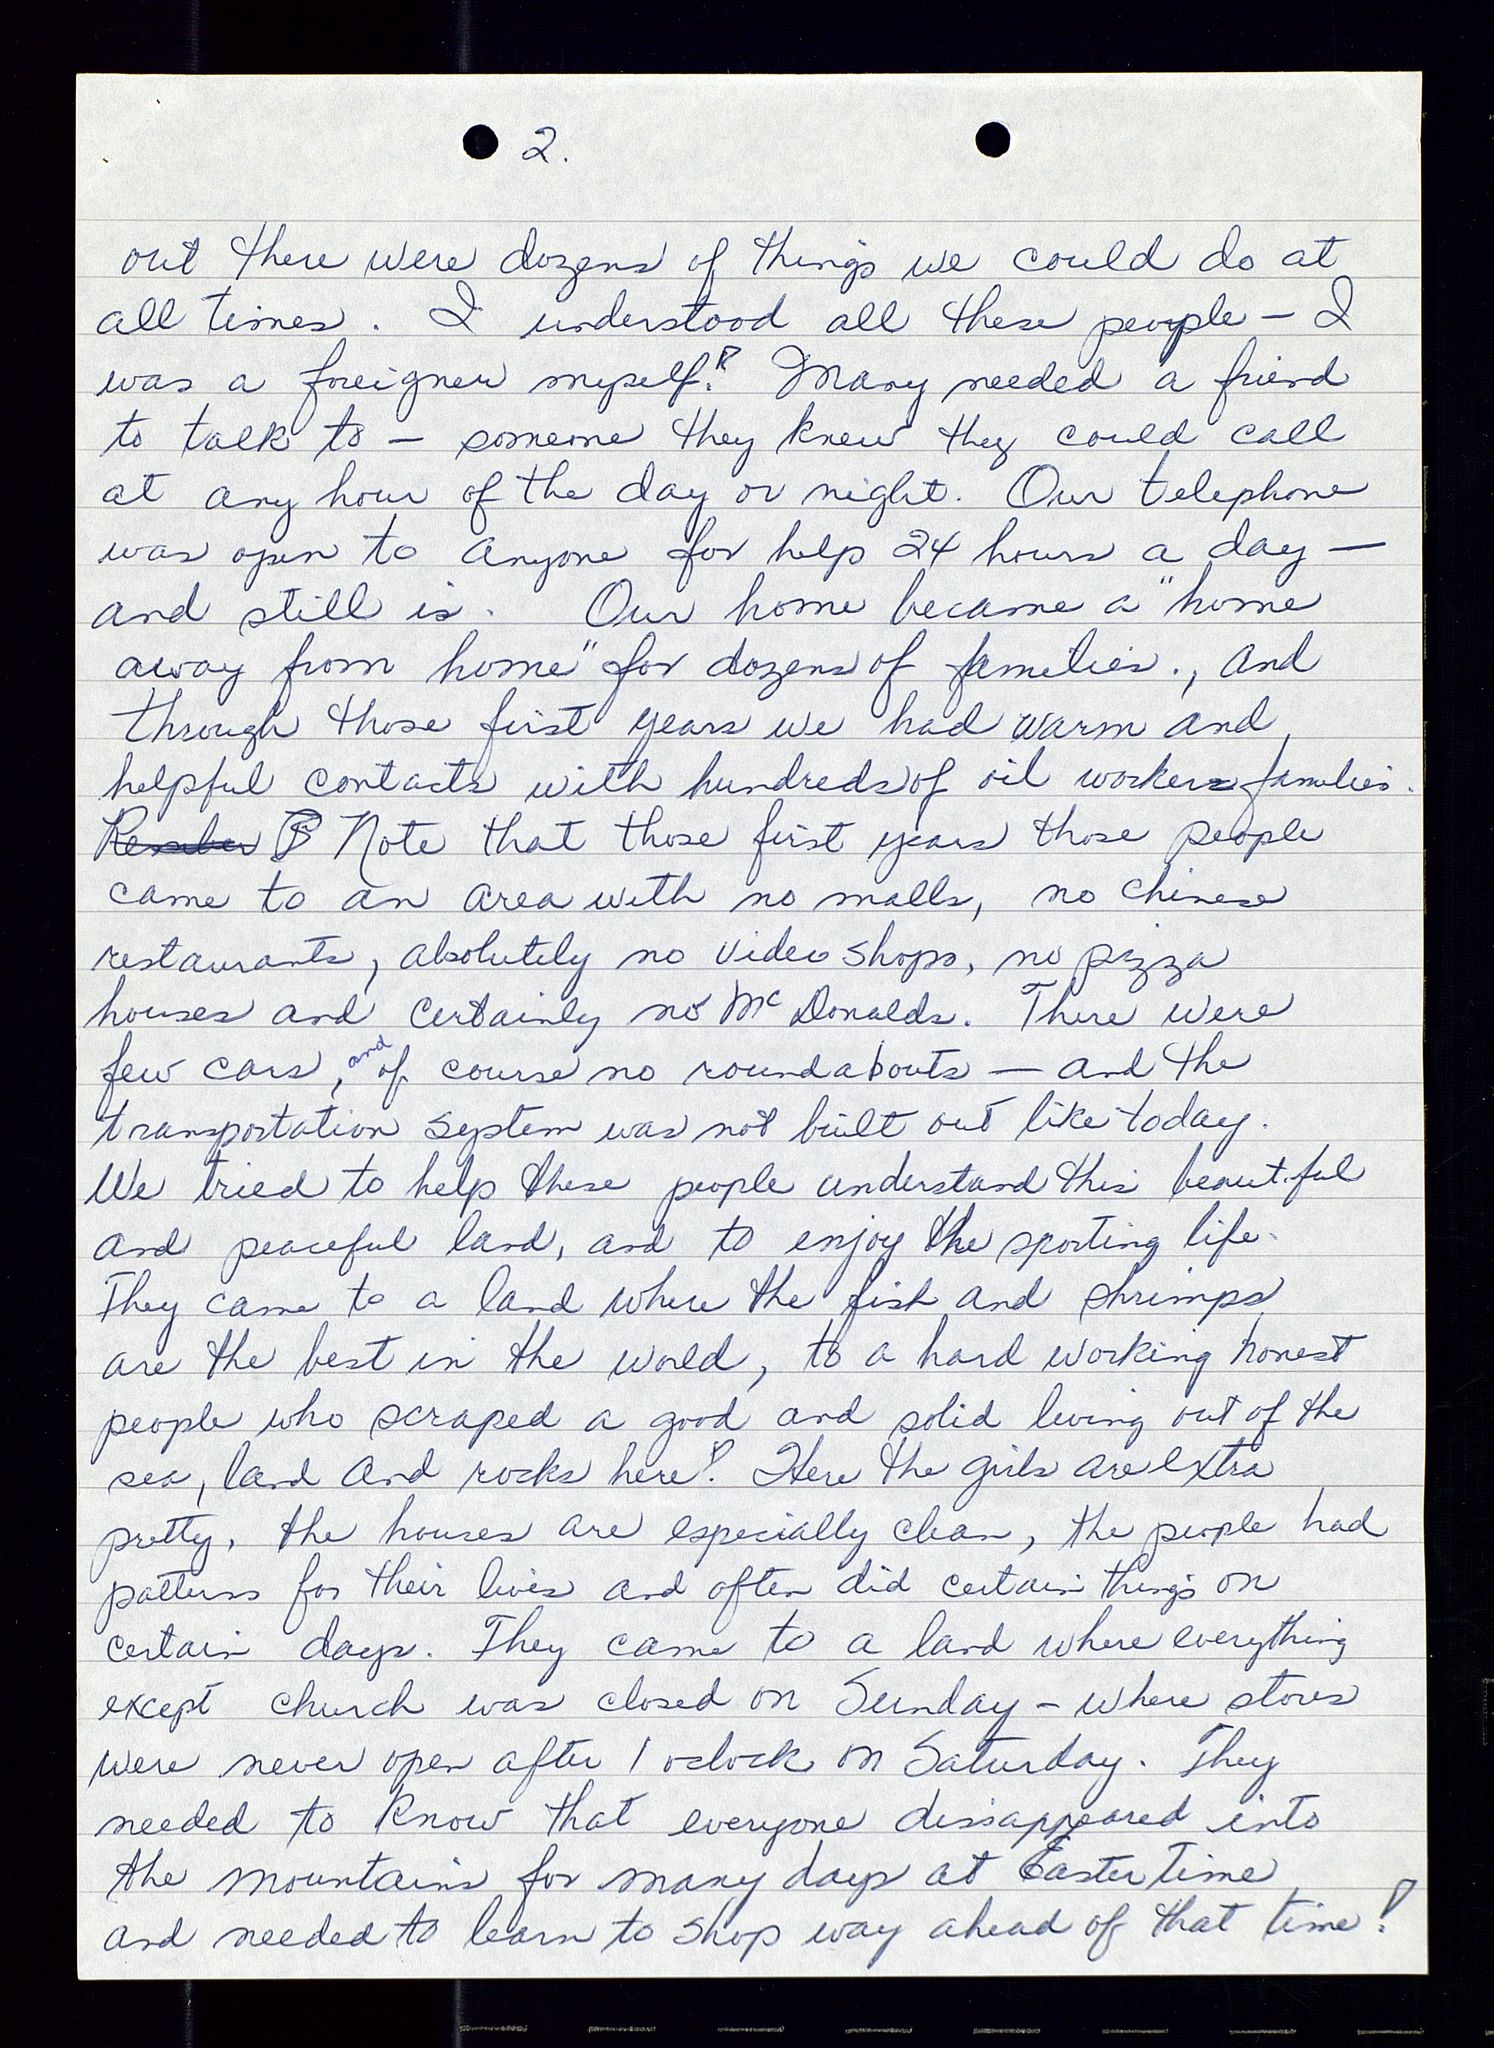 2.
out there were dozens of things we could do at
all times. I understood all these people – I
was a foreigner myself! Many needed a friend
to talk to – someone they knew they could call
at any hour of the day or night. Our telephone
was open to anyone for help 24 hours a day –
and still is. Our home became a "home
away from home" for dozens of families., and
through those first years we had warm and
helpful contacts with hundreds of oil workers families.
Note that those first years those people
came to an area with no malls, no chinese
restaurants, absolutely no video shops, no pizza
houses and certainly no McDonalds. There were
few cars, and of course no roundabouts – and the
transportation system was not built out like today.
We tried to help these people understand this beautiful
and peaceful land, and to enjoy the sporting life.
They came to a land where the fish and shrimps
are the best in the world, to a hard working honest
people who scraped a good and solid living out of the
sea, land and rocks here! Here the girls are extra
pretty, the houses are especially clean, the people had
patterns for their lives and often did certain things on
certain days. They came to a land where everything
except church was closed on Sunday – where stores
were never open after 1 oclock on Saturday. They
needed to know that everyone dissappeared into
the mountains for many days at Easter time
and needed to learn to shop way ahead of that time!